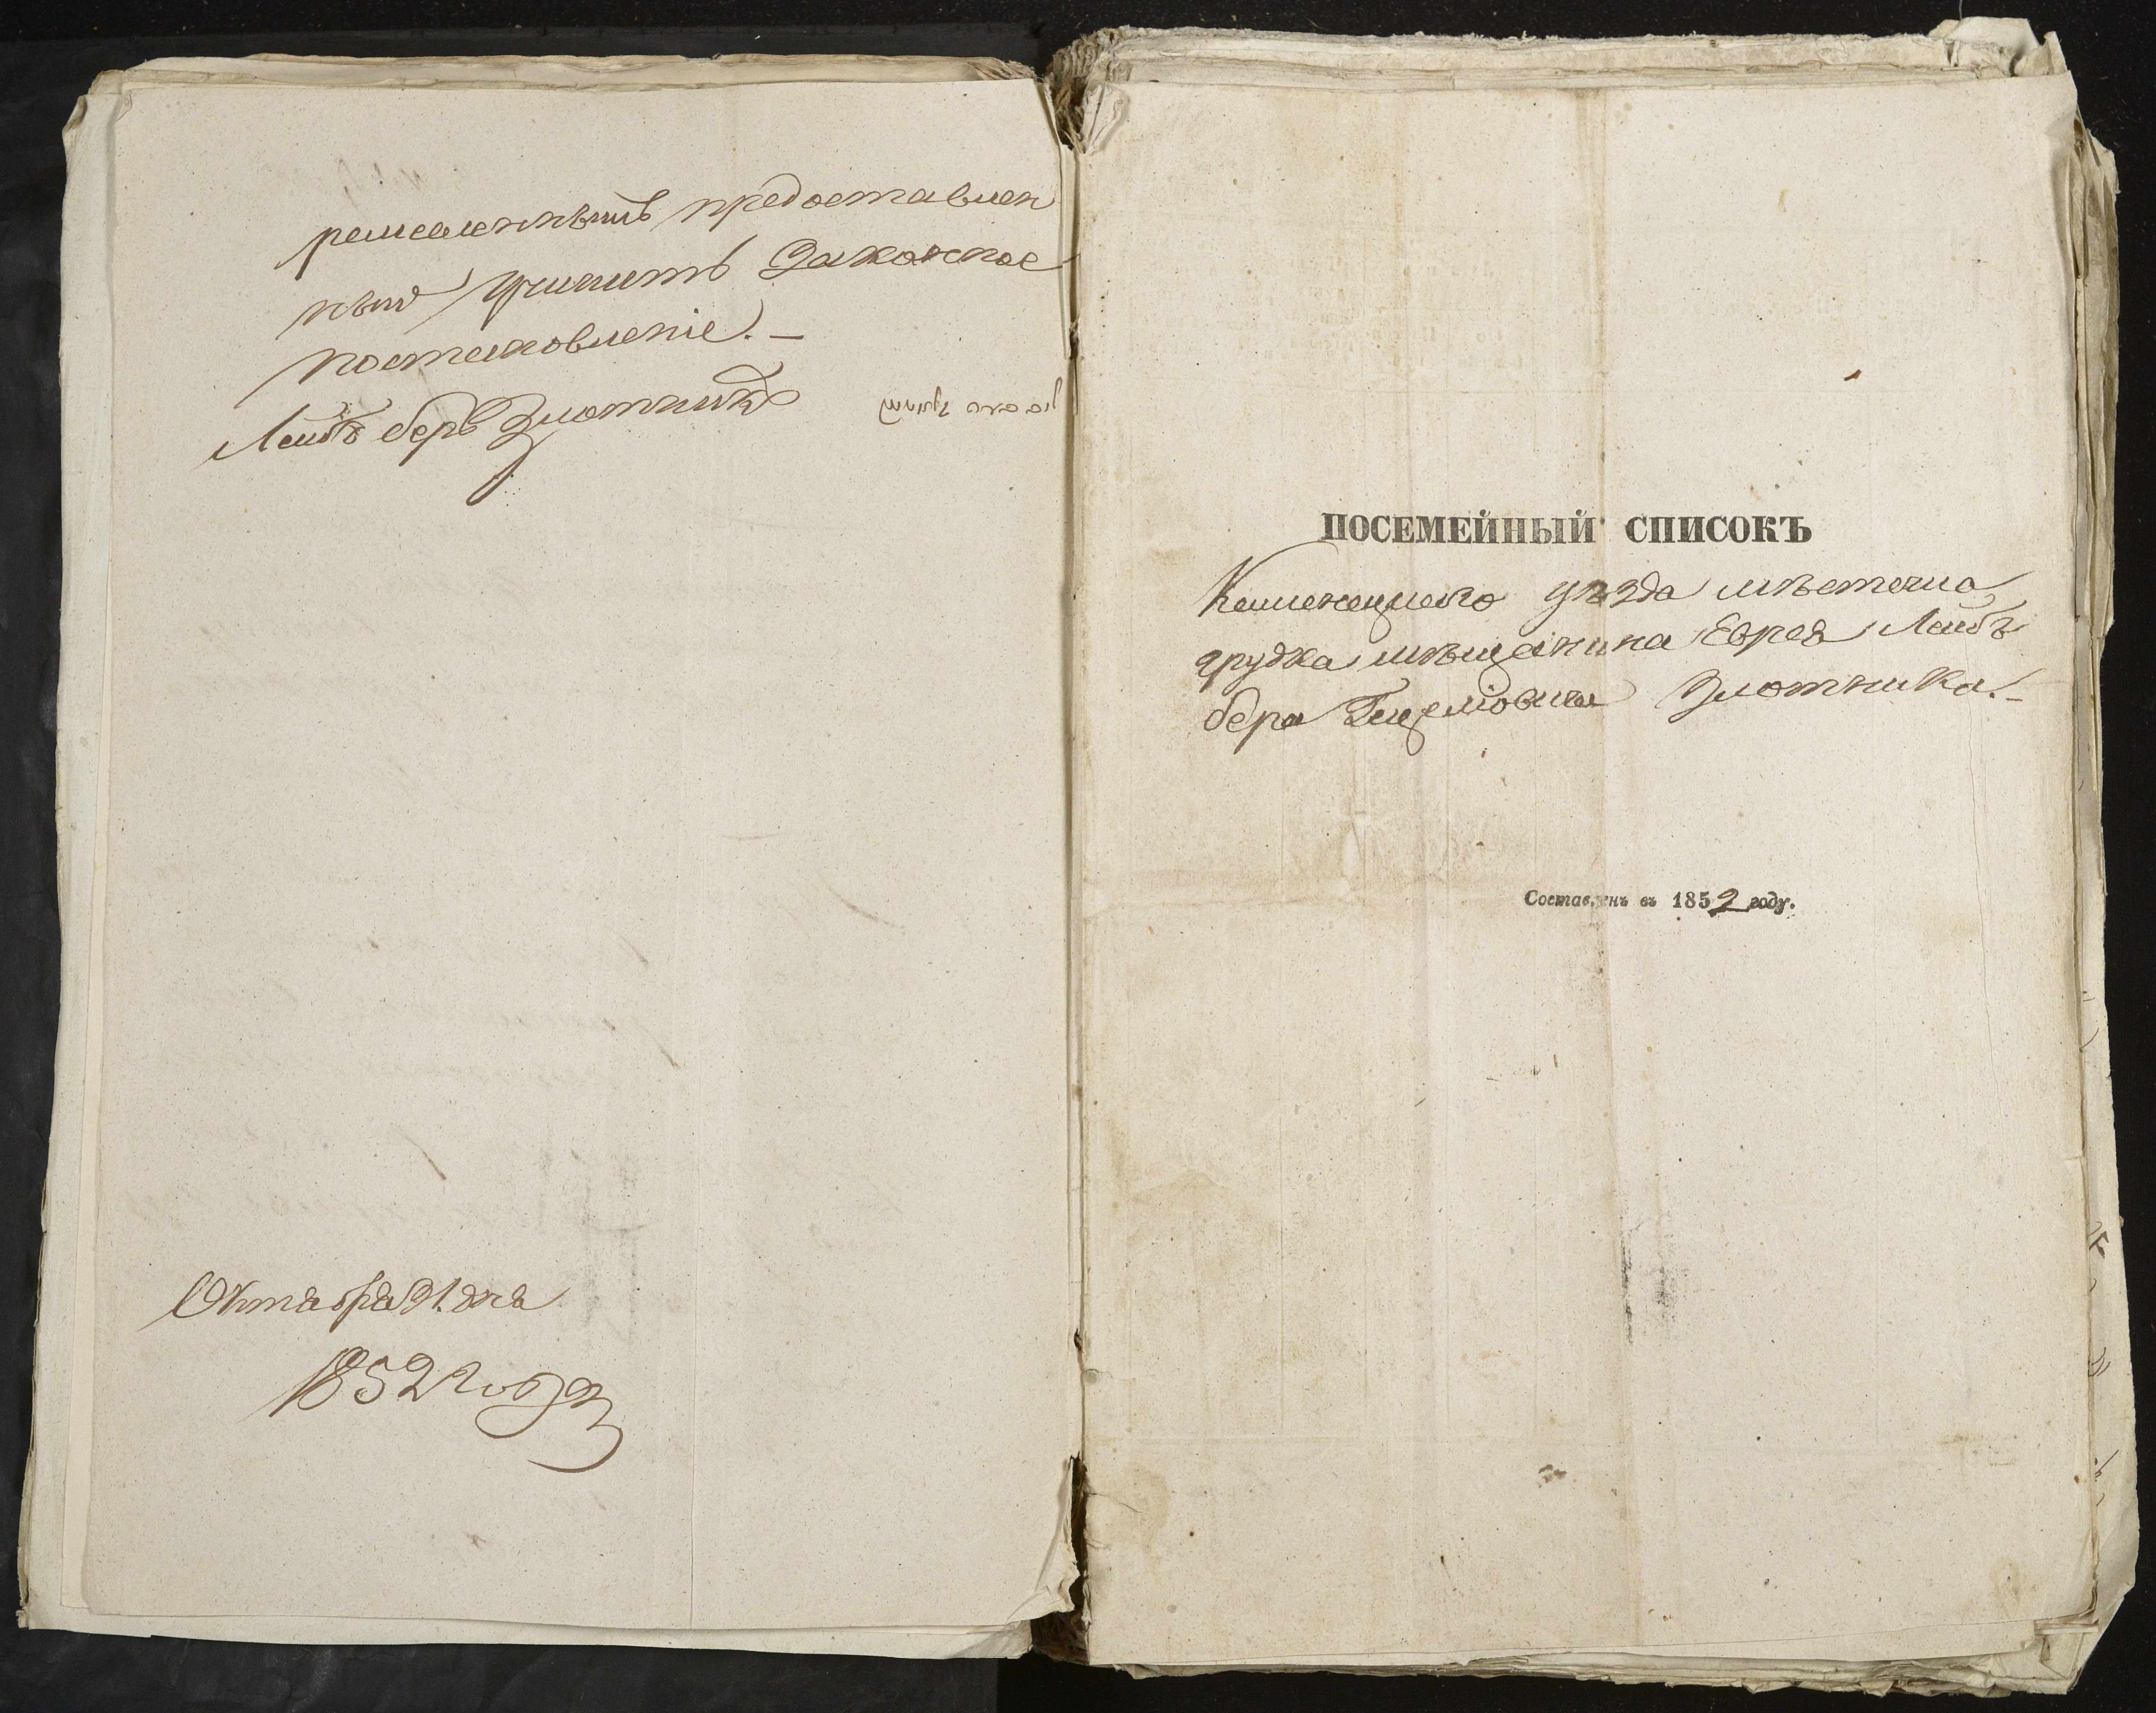 предоставлен
ным учинить Законное
постановленіе. —
Лейбъ беръ Злотникъ
Октября 21. дня
1852 года
ПОСЕМЕЙНЫЙ СПИСОКЪ
Каменецкаго уѣзда мѣстечка
грудка мѣщанина Еврея Лейбъ
бера Злотника. —
Составленъ въ 1852 году.